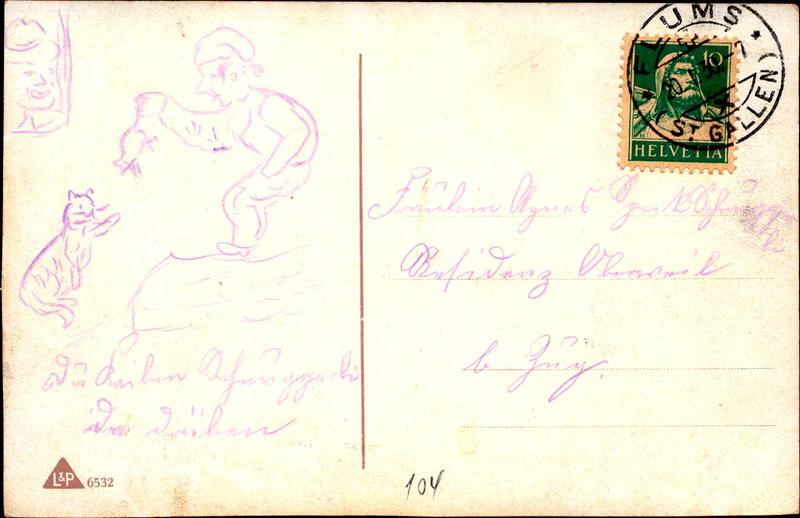 FLUMS
(ST. GALLEN)
10
HELVETIA
Fräulein Agnes
Residenz Oberwil
b Zug.
Du Kaiben Schnuggerli
da drüben
L&P 6532
104